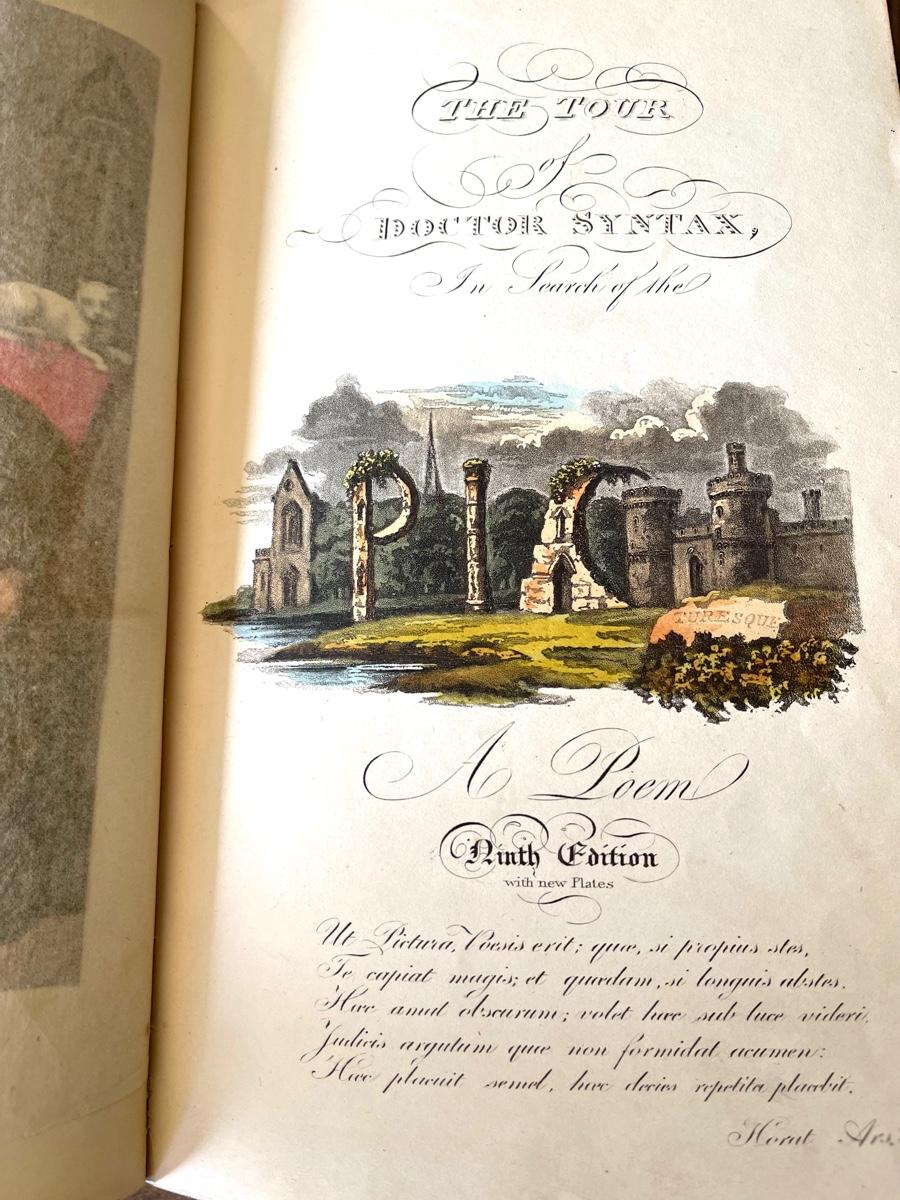 THE TOUR
of
DOCTOR SYNTAX,
In Search of the
PIC
TURESQUE
A Poem
Ninth Edition
with new Plates
Ut Pictura, Poesis erit; quæ, si propius stes,
Te capiat magis; et quædam, si longuis abstes.
Hæc amat obscurum; volet hæc sub luce videri,
Judicis argutum quæ non formidat acumen:
Hæc placuit semel, hæc decies repetita placebit.
Horat Ars.